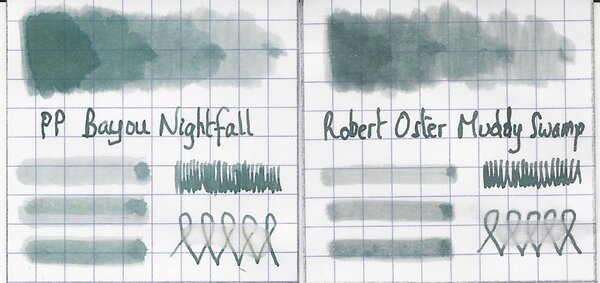 PP Bayou Nightfall
Robert Oster Muddy Swamp